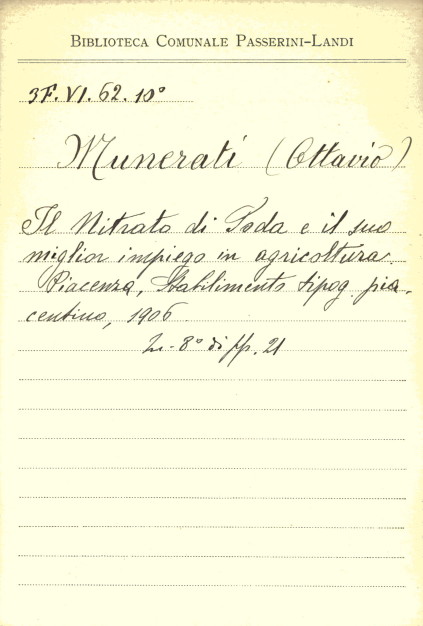 BIBLIOTECA COMUNALE PASSERINI-LANDI
3F. VI. 62. 10°
Munerati (Ottavio)
Il Nitrato di Soda e il suo
miglior impiego in agricoltura.
Piacenza, Stabilimento tipog. pia-
centino, 1906
In-8° di pp. 21